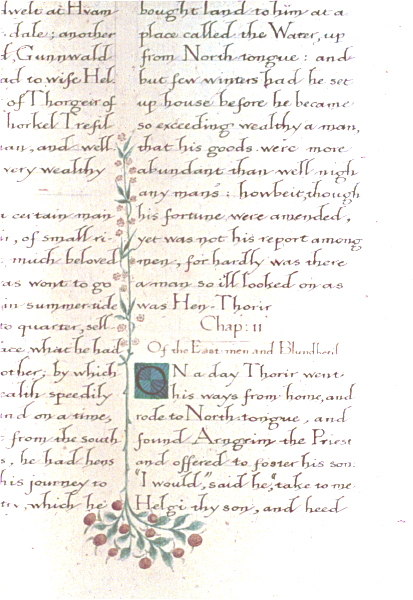 dwelt at Hvam
dale; another
Gunnwald
ad to wife Hel
of Thorgeir of
horkel Trefil
an, and well
very wealthy
a certain man
of small ri-
much beloved
as wont to go
in summer tide
to quarter, sell-
ace what he had
other; by which
ealth speedily
and on a time,
from the south
s, he had hens
his journey to
which he
bought land to him at a
place called the Water, up
from North tongue: and
but few winters had he set
up house before he became
so exceeding wealthy a man,
that his goods were more
abundant than well nigh
any man's: howbeit, though
his fortune were amended,
yet was not his report among
men, for hardly was there
a man so ill looked on as
was Hen-Thorir
Chap: 11
Of the East-men, and Blundketil
ON a day Thorir went
his ways from home, and
rode to North-tongue, and
found Arngrim the Priest
and offered to foster his son.
"I would," said he, "take to me
Helgi thy son, and heed